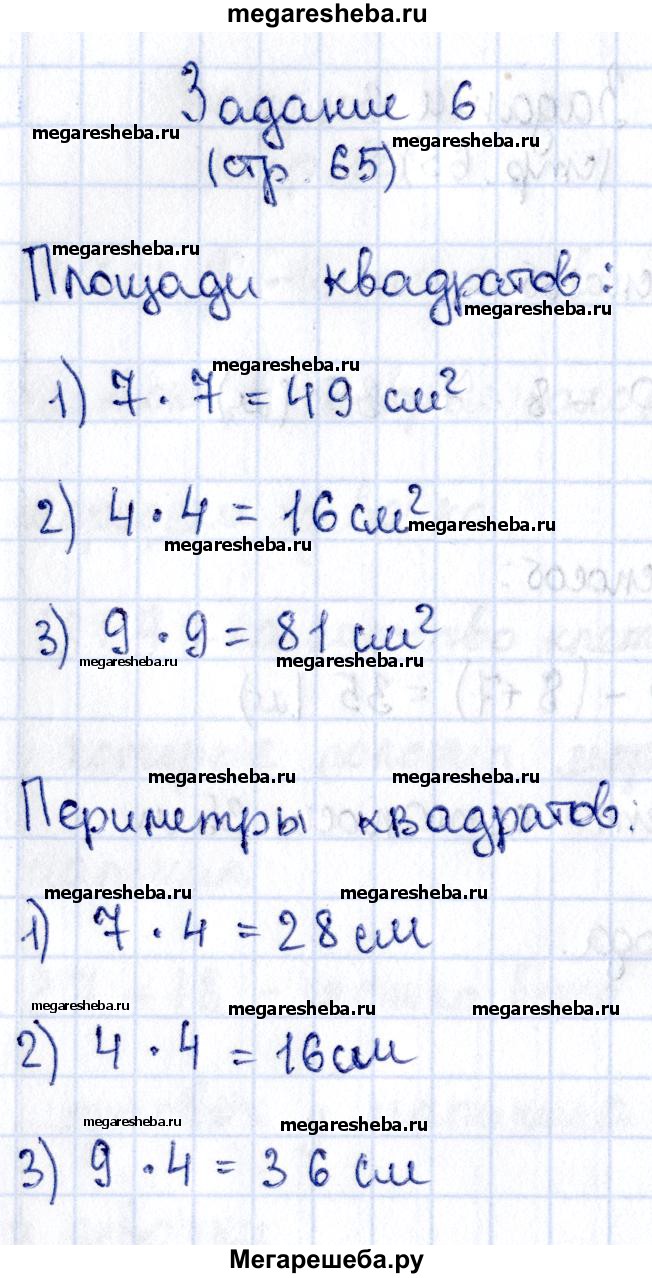 megaresheba.ru
Задание 6
megaresheba.ru
megaresheba.ru
(стр. 65)
megaresheba.ru
Площади квадратов:
megaresheba.ru
megaresheba.ru
1) 7 · 7 = 49 см²
2) 4 · 4 = 16 см²
megaresheba.ru
megaresheba.ru
3) 9 · 9 = 81 см²
megaresheba.ru
megaresheba.ru
megaresheba.ru
megaresheba.ru
Периметры квадратов:
megaresheba.ru
megaresheba.ru
1) 7 · 4 = 28 см
megaresheba.ru
megaresheba.ru
megaresheba.ru
2) 4 · 4 = 16 см
megaresheba.ru
megaresheba.ru
3) 9 · 4 = 36 см
Мегарешеба.ру